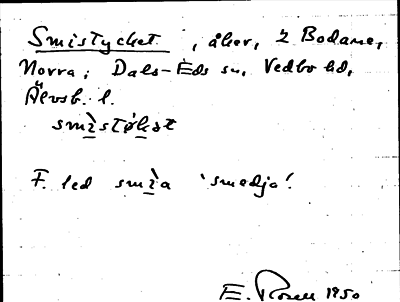 Smistycket, åker, 2 Bodane,
Norra; Dals-Eds sn, Vedbo hd,
Älvsb. l.
smìstøkət
F. led smìa 'smedja'.
E. Rosell 1950